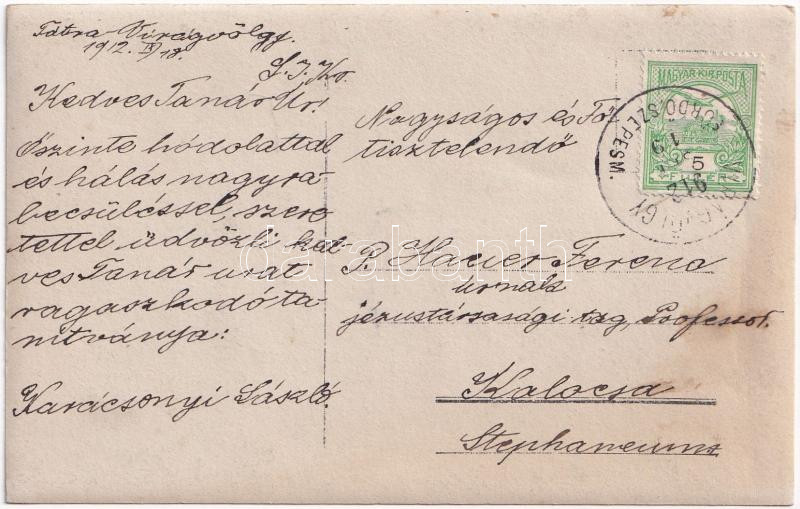 Tátra-Virágvölgy.
1912. IV/18.
L. J. Kr.
Kedves Tanár Úr!
Őszinte hódolattal
és hálás nagyra
becsüléssel, szere
tettel üdvözli ked
ves Tanár urat
ragaszkodó ta-
nítványa:
Karácsonyi László.
Nagyságos és Fő
tisztelendő
P. Hauer Ferenc
úrnak
jézustársasági tag, Professor.
Kalocsa
Stephaneum
MAGYAR KIR. POSTA
5
FILLÉR
VIRÁGVÖLGY
FÜRDŐ/SZEPESM.
912
darabanth